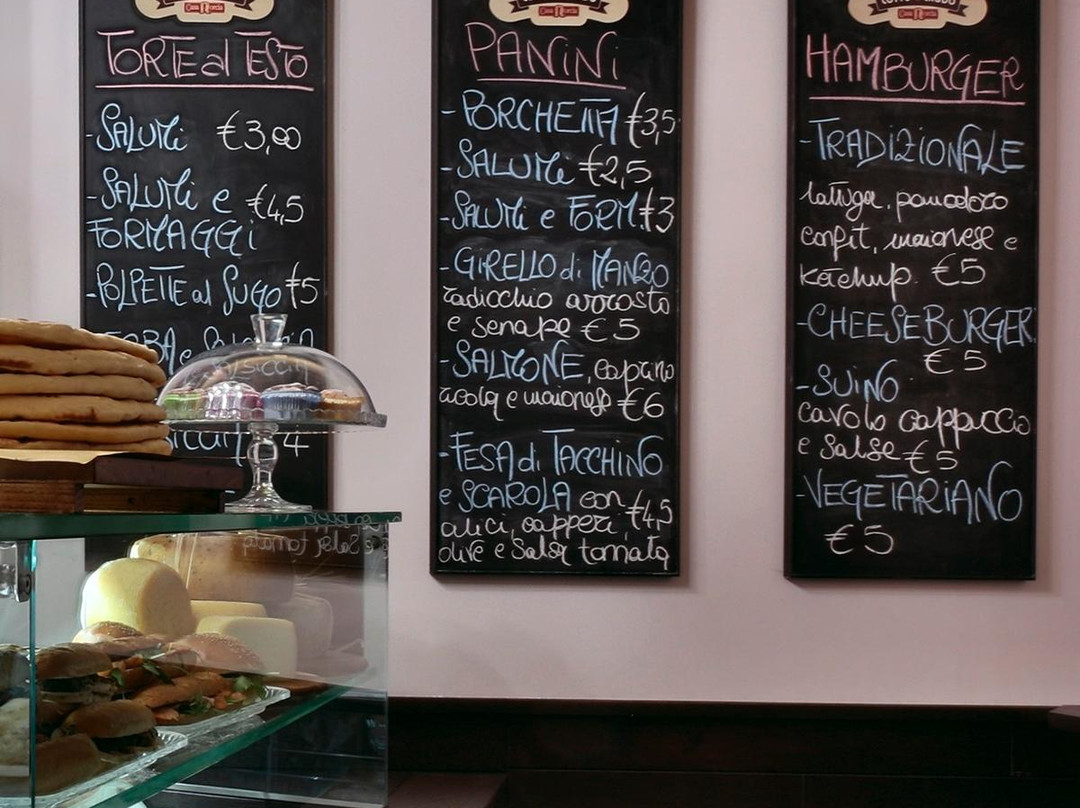 TORTE al TESTO
- SALUMi €3,00
- SALUMi e €4,5
FORMAGGi
- POLPETTE al SUGO €5
4
PANiNi
- PORCHETTA €3,5
- SALUMi €2,5
- SALUMi e FORM. €3
- GiRELLO di MANZO
radicchio arrosto
e senape € 5
- SALMONE, caprino
rucola e maionese €6
- FESA di TACCHiNO
e SCAROLA con €4,5
alici, capperi,
olive e salsa tomata
HAMBURGER
- TRADiZiONALE
lattuga, pomodoro
confit, maionese e
ketchup. €5
- CHEESEBURGER
€ 5
- SUiNO
cavolo cappuccio
e salse € 5
- VEGETARiANO
€ 5